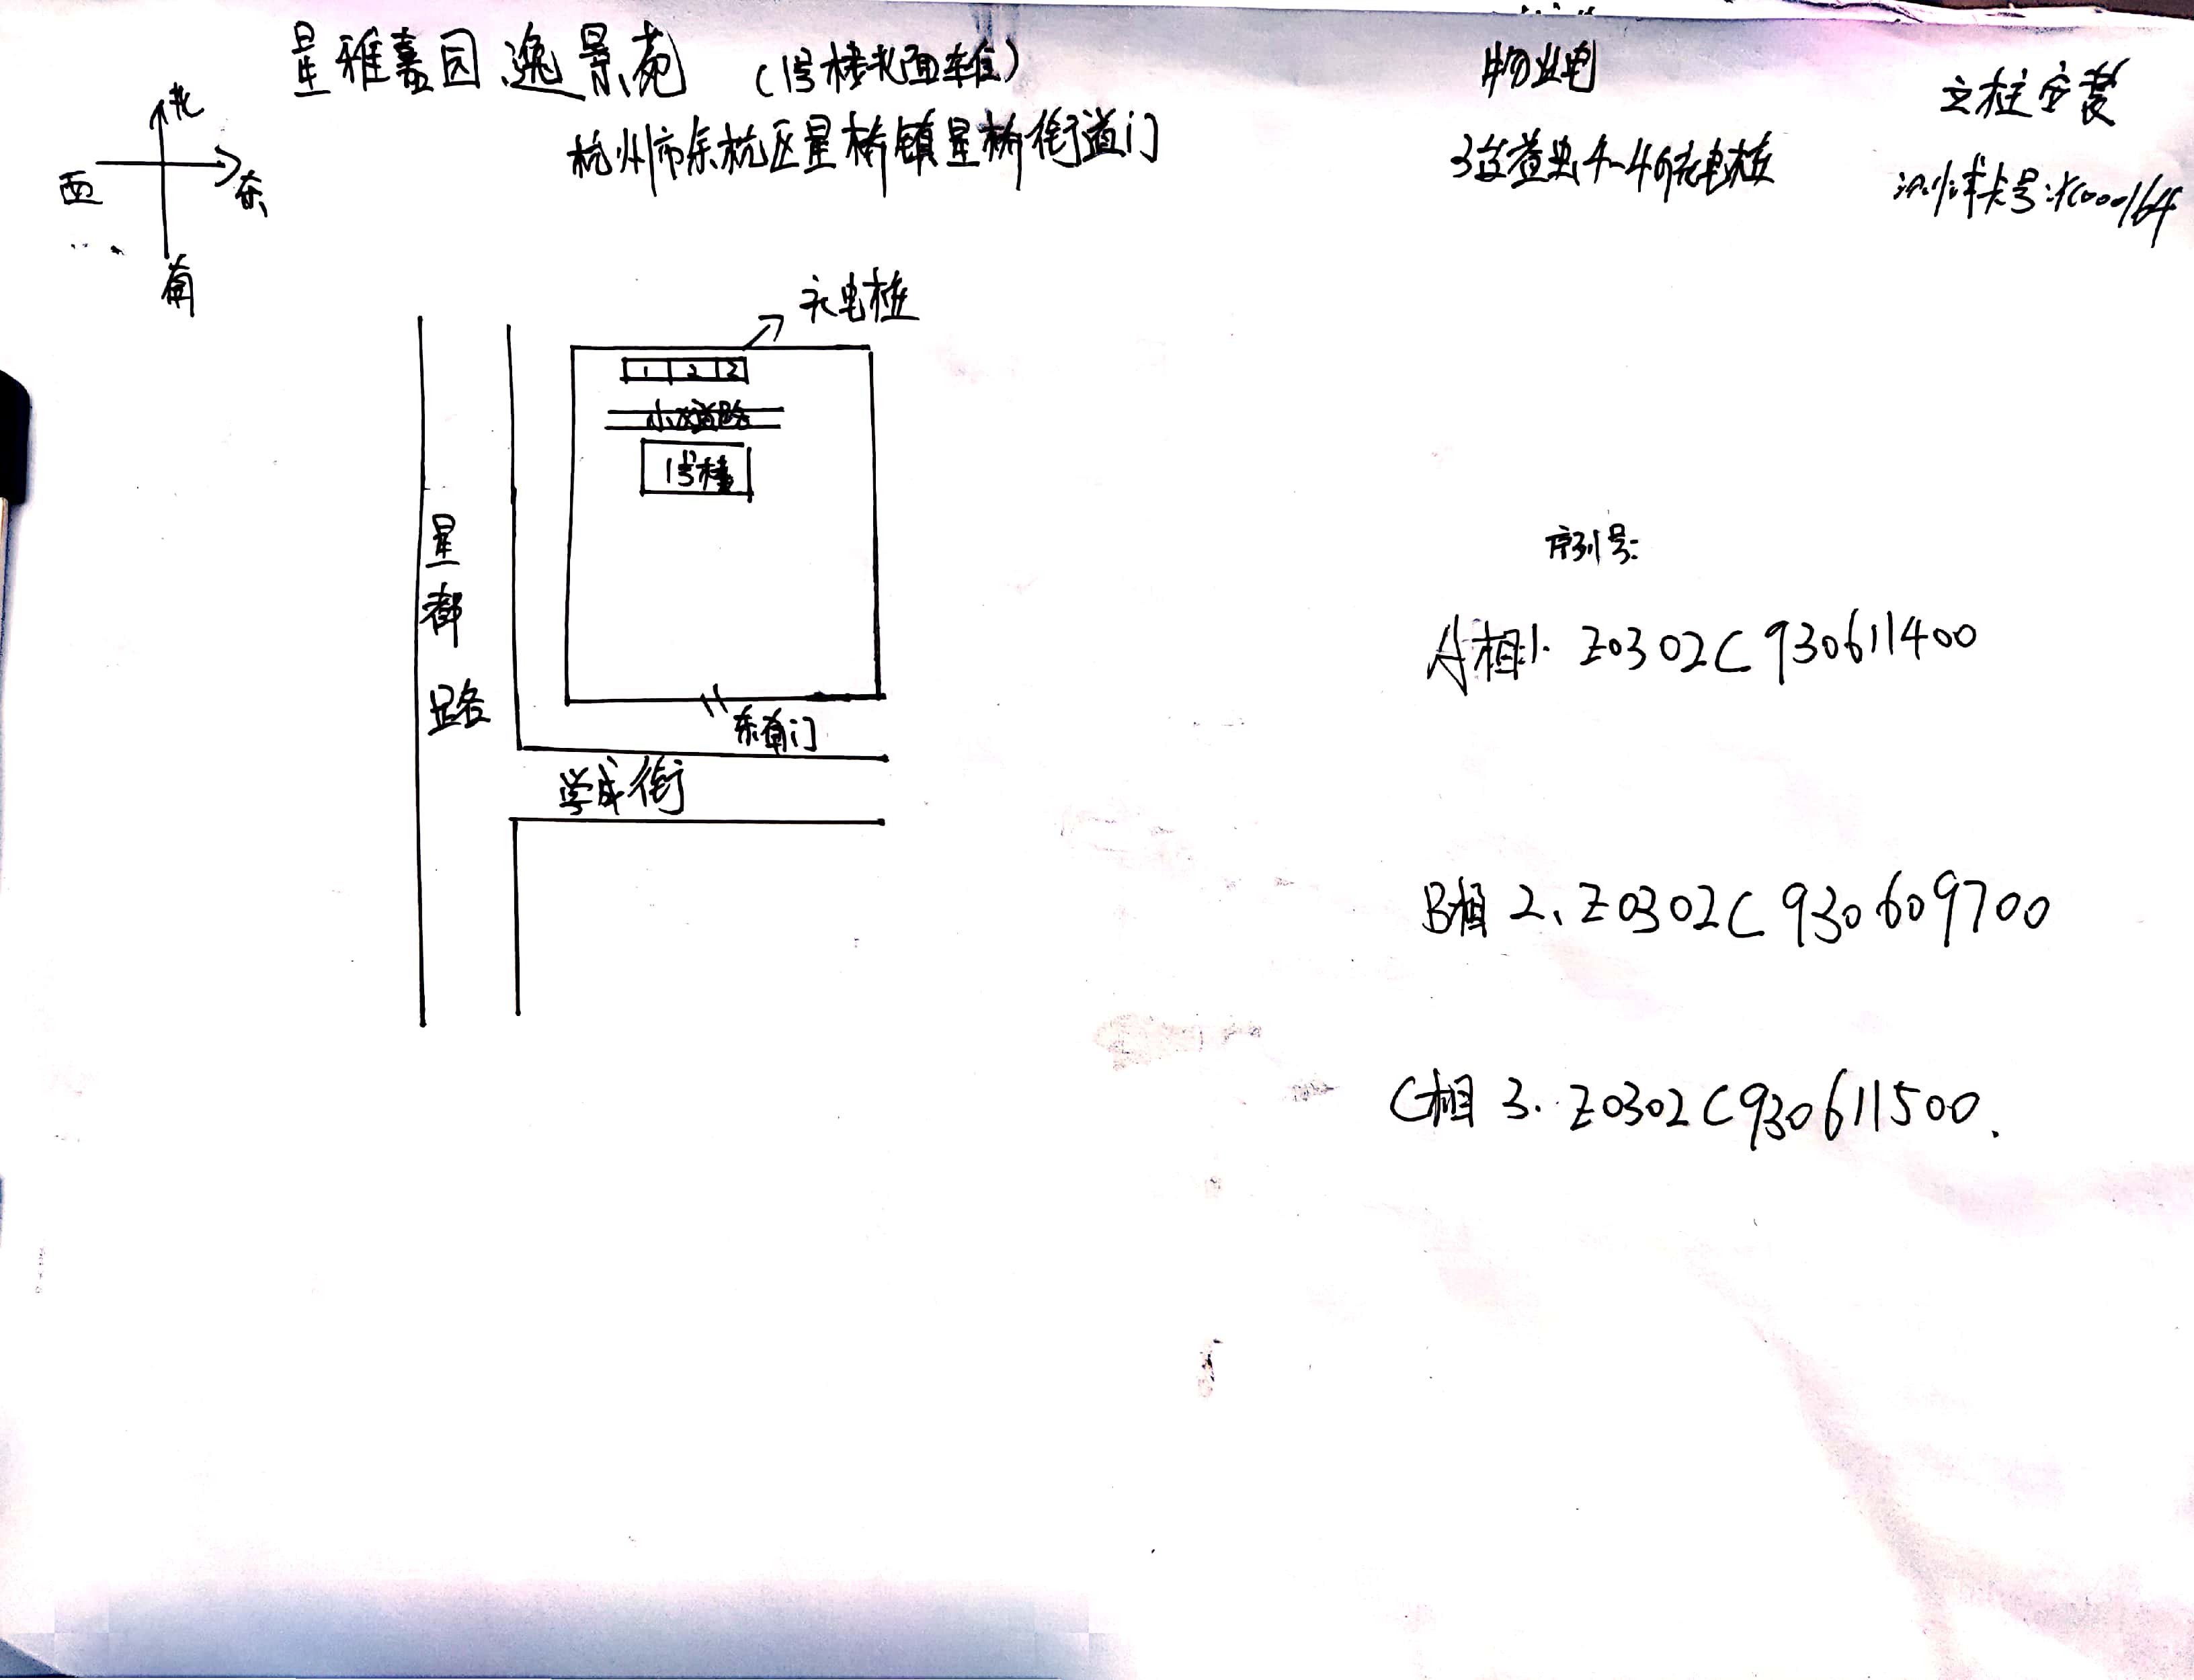 星雅嘉园逸景苑 (1号楼北面车位)
杭州市余杭区星桥镇星桥街道门
物业电
立柱安装
3 4-46充电桩
卡号:K000164
北
西
东
南
充电桩
1 2 3
小区道路
1号楼
星都路
东南门
学成街
序列号:
A相1. Z0302C930611400
B相2、Z0302C930609700
C相3. Z0302C930611500.